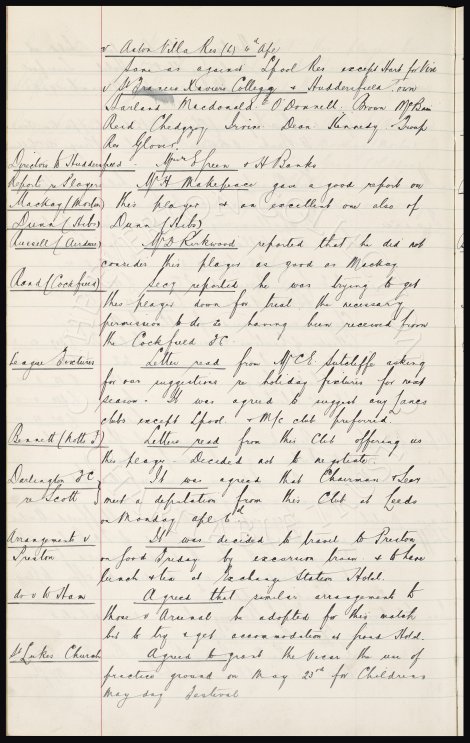 v Aston Villa Res (L) 4th Apl
Same as against Lpool Res except Hart for Virr
v St Francis Xaviers College & Huddersfield Town
Harland Macdonald O'Donnell Brown McBain
Reid Chedgzoy Irvine Dean Kennedy & Troup
Res Glover
Directors to Huddersfield Messrs Green & H Banks
Report re Players Mr H Makepeace gave a good report on
Mackay (Morton) this player & an excellent one also of
Dunn (Hibs) Dunn (Hibs)
Russell (Airdrie) Mr D Kirkwood reported that he did not
consider this player as good as Mackay
Rand (Cockfield) Secy reported he was trying to get
this player down for trial the necessary
permission to do so having been received from
the Cockfield F.C.
League Fixtures Letter read from Mr C.E. Sutcliffe asking
for our suggestions re holiday fixtures for next
season. It was agreed to suggest any Lancs
clubs except Lpool. & M/c club preferred.
Bennett (Notts F) Letters read from this Club offering us
this player. Decided not to negotiate.
Darlington F.C. It was agreed that Chairman & Secy
re Scott meet a deputation from this Club at Leeds
on Monday Apl 6th
Arrangements v It was decided to travel to Preston
Preston on Good Friday by excursion train & to have
lunch & tea at Exchange Station Hotel.
do v W Ham Agreed that similar arrangement to
those v Arsenal be adopted for this match
but to try & get accommodation at Hotel.
St Lukes Church Agreed to grant the Vicar the use of
practice ground on May 23rd for Childrens
may day festival